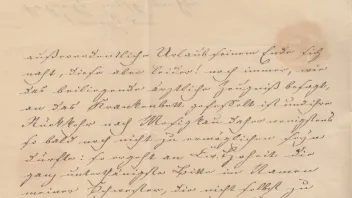 außerordentliche Urlaub seinem Ende sich
naht, diese aber leider! noch immer, wie
das beiliegende ärztliche Zeugniß besagt,
an das Krankenbett gefesselt ist und ihre
Rückkehr nach Mosigkau daher wenigstens
so bald noch nicht zu ermöglichen seyn
dürfte: so ergeht an Ew. Hoheit die
ganz unterthänigste Bitte im Namen
meiner Schwester, die nicht selbst zu